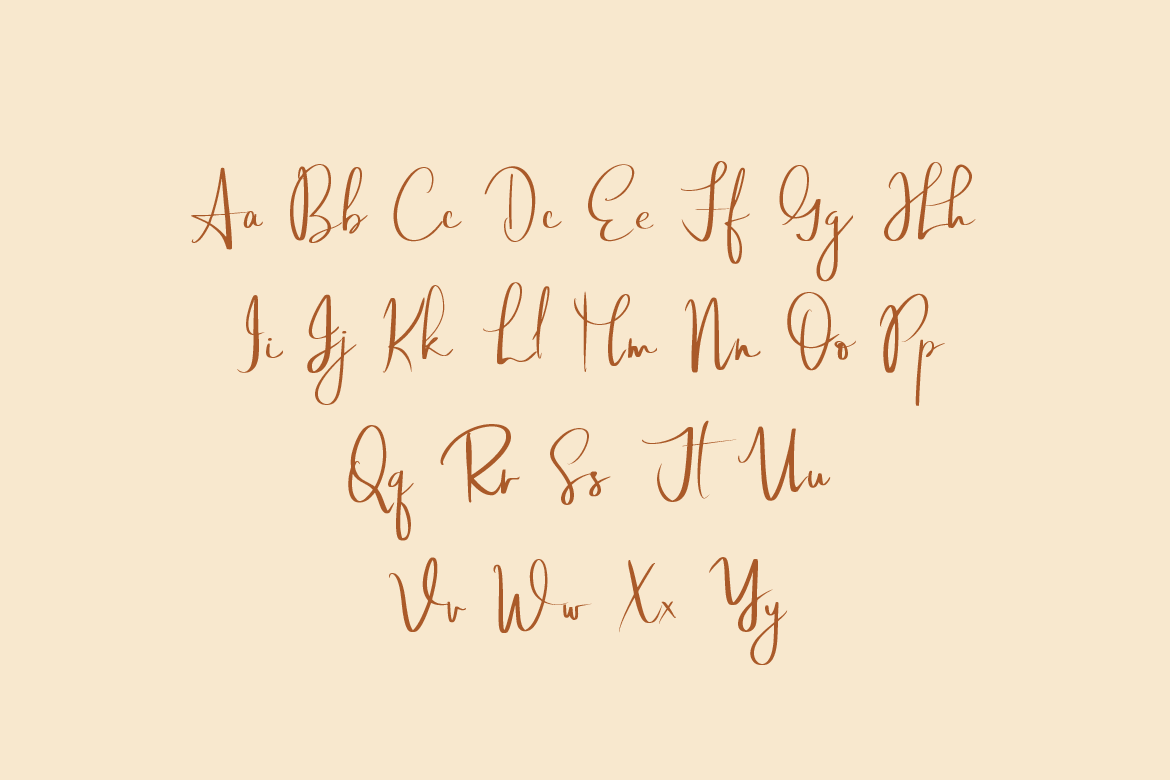 Aa Bb Cc Dc Ee Ff Gg Hh
Ii Jj Kk Ll Mm Nn Oo Pp
Qq Rr Ss Tt Uu
Vv Ww Xx Yy